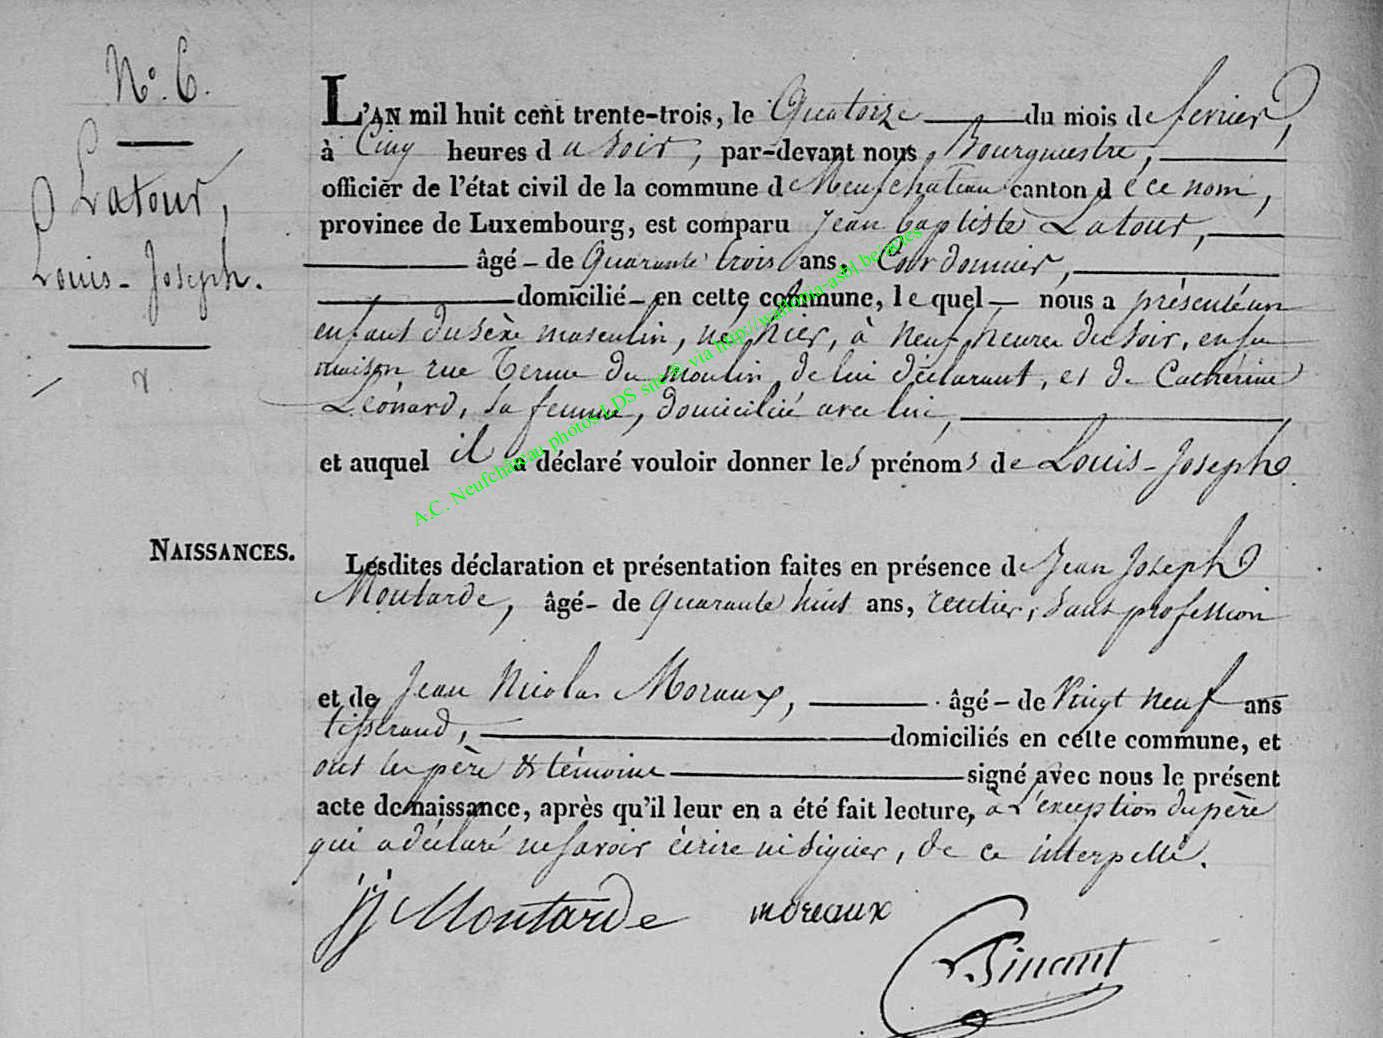 N.° 6.
Latour,
Louis-Joseph.
L'AN mil huit cent trente-trois, le Quatorze du mois de fevrier,
à Cinq heures du soir, par-devant nous Bourgmestre,
officier de l'état civil de la commune de Neufchateau canton de ce nom,
province de Luxembourg, est comparu Jean baptiste Latour,
âgé - de Quarante trois ans, Cordonnier,
domicilié - en cette commune, lequel - nous a présenté un
enfant du sèxe masculin, né hier, à neuf heures du soir, en sa
maison rue Terme du moulin, de lui déclarant, et de Catherine
Léonard, sa femme, domiciliée avec lui,
et auquel il a déclaré vouloir donner les prénoms de Louis-Joseph.
NAISSANCES.
Lesdites déclaration et présentation faites en présence de Jean Joseph
Moutarde, âgé - de quarante huit ans, rentier, sans profession
et de Jean Nicolas Moraux, âgé - de Vingt neuf ans
tisserand, domiciliés en cette commune, et
ont les père & témoins signé avec nous le présent
acte de naissance, après qu'il leur en a été fait lecture, à L'exception du père
qui a déclaré ne savoir écrire ni signer, de ce interpellé.
JJ Moutarde moreaux
Sinant
A.C. Neufchâteau photos LDS via http://wallonia-asbl.be/actes